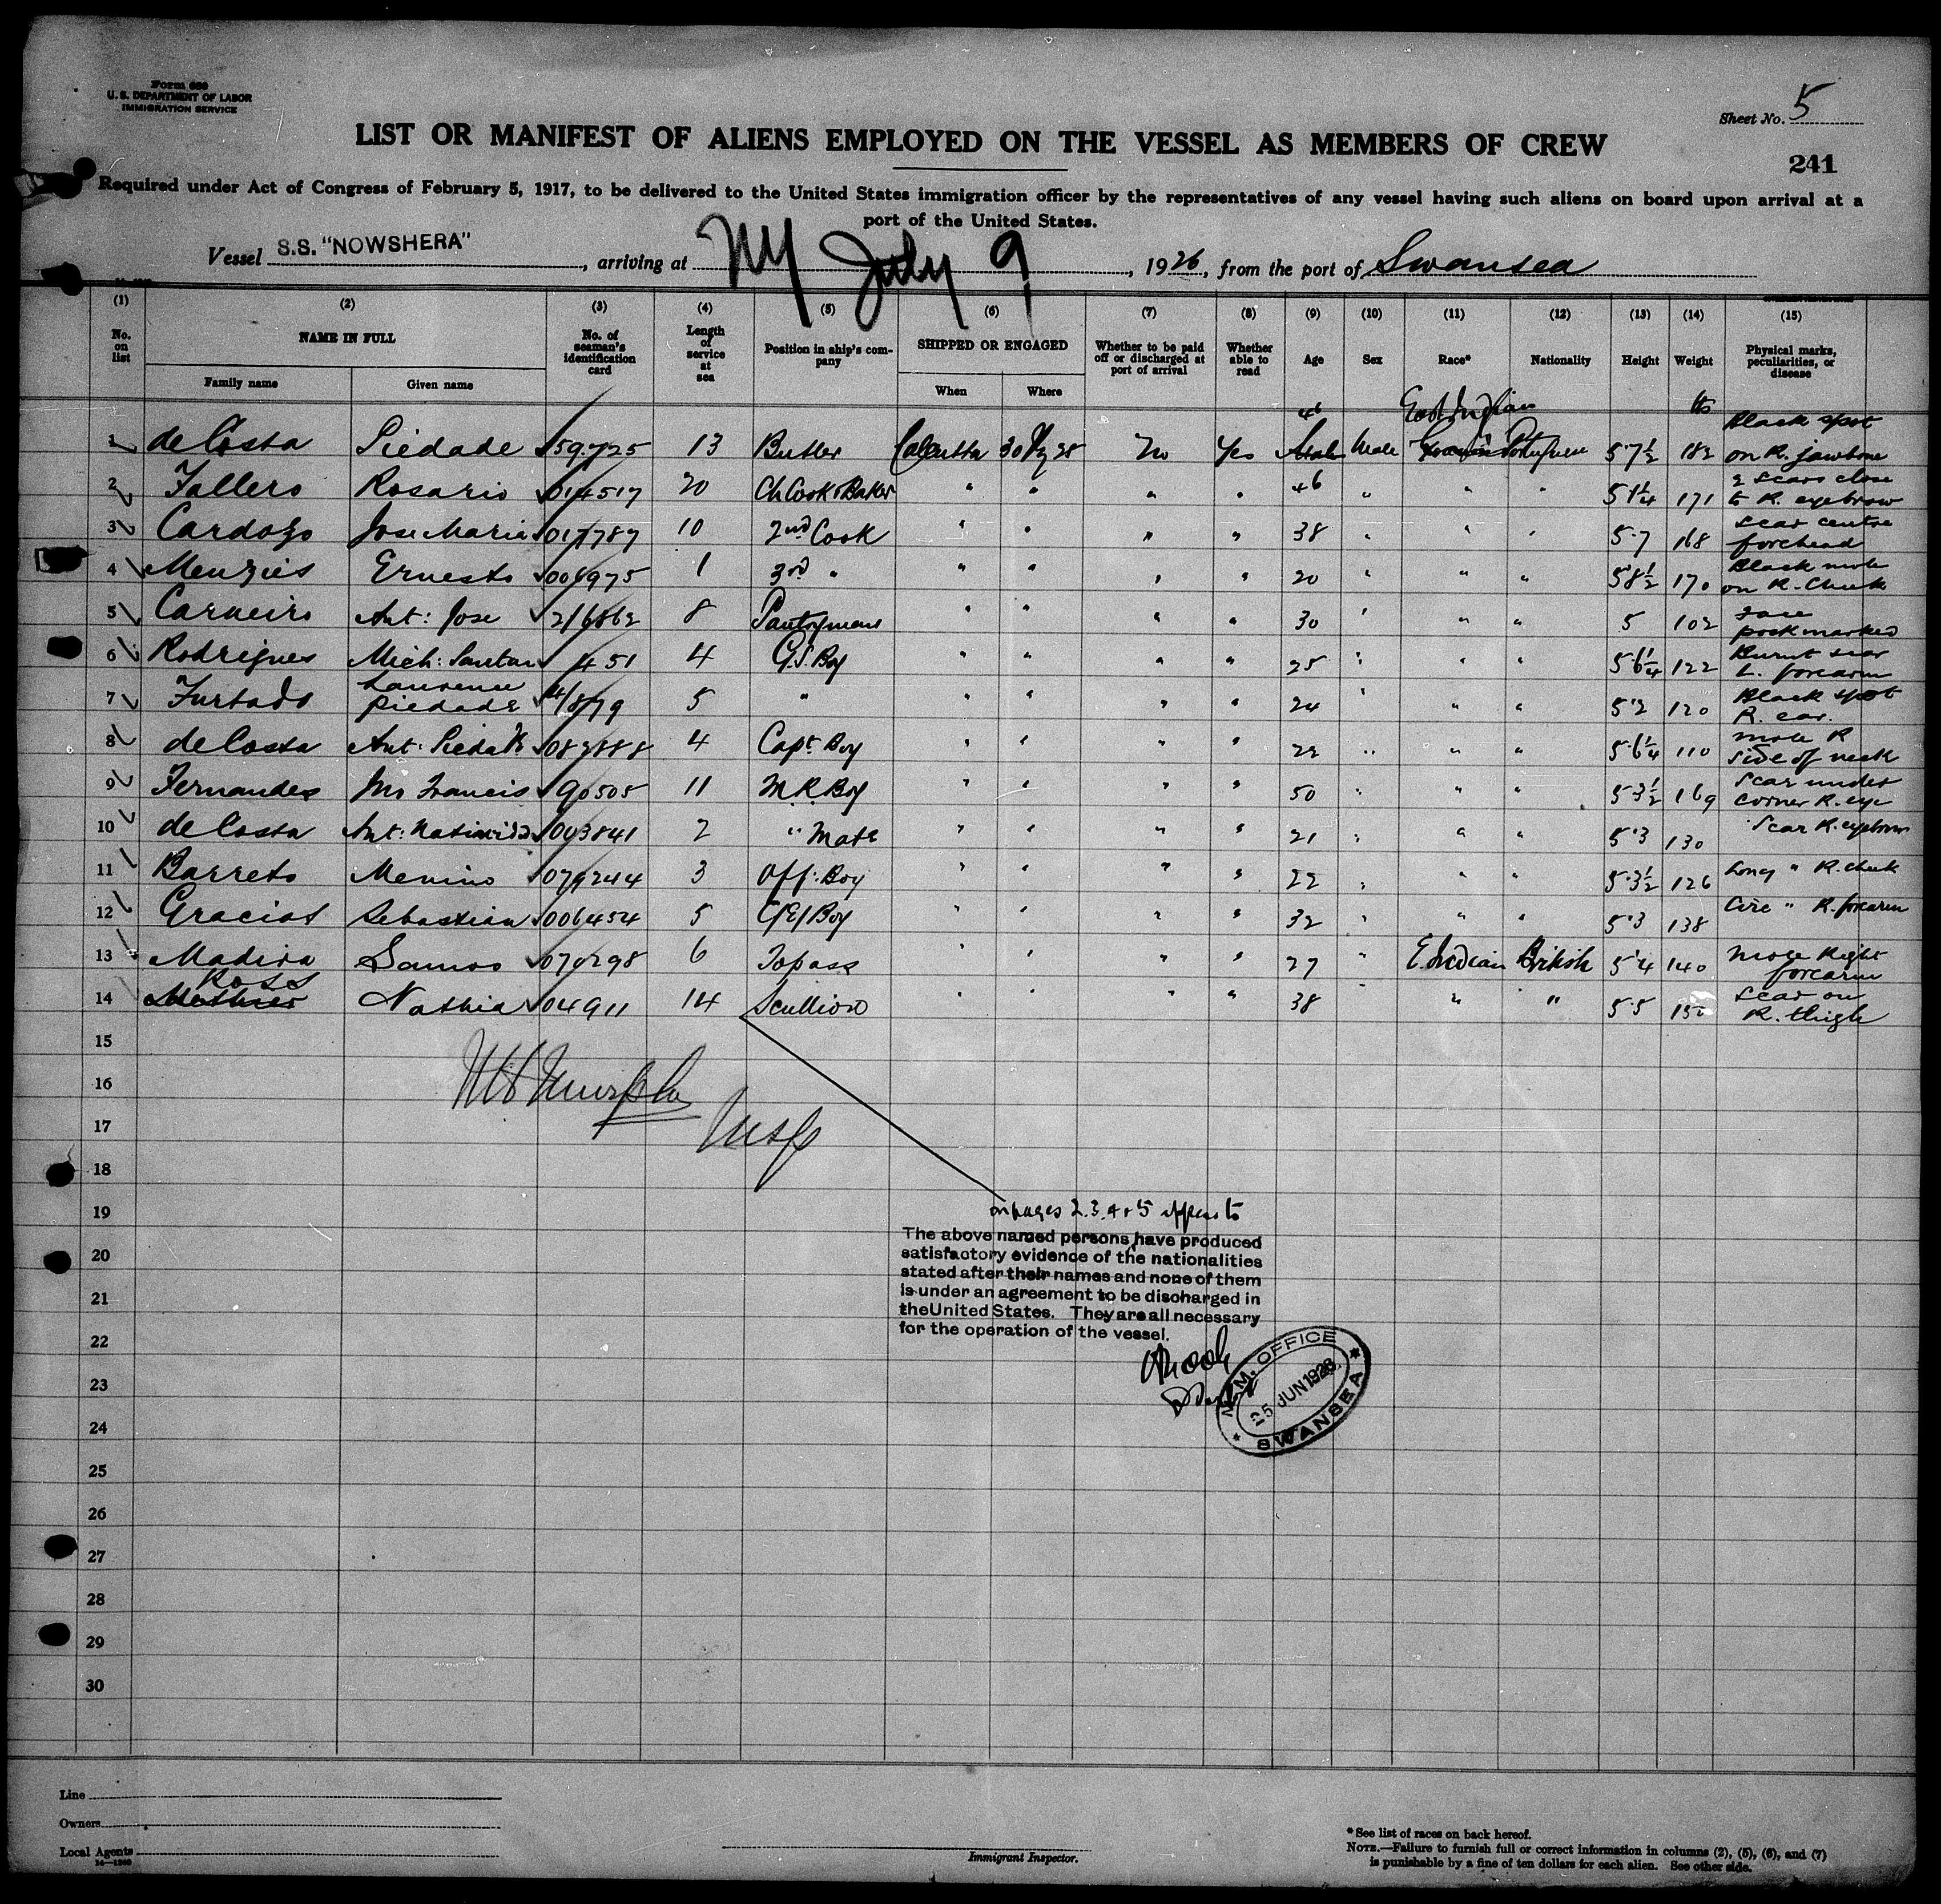 Form 680
U. S. DEPARTMENT OF LABOR
IMMIGRATION SERVICE
Sheet No. 5
LIST OR MANIFEST OF ALIENS EMPLOYED ON THE VESSEL AS MEMBERS OF CREW
241
Required under Act of Congress of February 5, 1917, to be delivered to the United States immigration officer by the representatives of any vessel having such aliens on board upon arrival at a
port of the United States.
Vessel S.S. "NOWSHERA", arriving at NY July 9, 1926, from the port of Swansea
(1) (2) (3) (4) (5) (6) (7) (8) (9) (10) (11) (12) (13) (14) (15)
No. on list NAME IN FULL No. of seaman's identification card Length of service at sea Position in ship's company SHIPPED OR ENGAGED Whether to be paid off or discharged at port of arrival Whether able to read Age Sex Race* Nationality Height Weight Physical marks, peculiarities, or disease
Family name Given name When Where
46 East Indian lbs Black spot
1 de Costa Piedade 159725 13 Butler Calcutta No Yes Male Portuguese 5·7½ 182 on R. jawbone
2 Fallero Rosario 014517 20 Ch Cook & Baker " " " " 46 " " " 5 1¼ 171 2 scars close to R. eyebrow
3 Cardozo Jose Maria 017787 10 2nd Cook " " " " 38 " " " 5·7 168 scar centre forehead
4 Menzies Ernesto 006975 1 3rd " " " " " 20 " " " 5 8½ 170 Black mole on R. Cheek
5 Carneiro Ant: Jose 216862 8 Pantryman " " " " 30 " " " 5 102 face pock marked
6 Rodrigues Mich: 1451 4 G.S. Boy " " " " 25 " " " 5 6¼ 122 Burnt scar L. forearm
7 Furtado Laurence Piedade 5 " " " " " 24 " " " 5·2 120 Black spot R. ear.
8 de Costa Ant: 083888 4 Capt. Boy " " " " 22 " " " 5·6¼ 110 mole R side of neck
9 Fernandes Francis 90505 11 M.R. Boy " " " " 50 " " " 5·3½ 169 Scar under corner R. eye
10 de Costa Ant: 003841 2 " Mate " " " " 21 " " " 5·3 130 Scar R. eyebrow
11 Barreto Menino 079244 3 Off: Boy " " " " 22 " " " 5·3½ 126 Long " R. cheek
12 Gracias Sebastian 006454 5 Boy " " " " 32 " " " 5·3 138 Circ " R. forearm
13 Madira Samoo 070298 6 Topass " " " " 27 " E. Indian British 5·4 140 mole Right forearm
Ross
14 Nathia 04911 14 Scullion " " " " 38 " " " 5·5 150 scar on R. thigh
15
16
17
18
19 on pages 2.3.4 & 5 appear to
The above named persons have produced
20
satisfactory evidence of the nationalities
stated after their names and none of them
21 is under an agreement to be discharged in
the United States. They are all necessary
for the operation of the vessel.
22
M.M. OFFICE
23
25 JUN 1926
24
SWANSEA
25
26
27
28
29
30
Line
Owners
Local Agents
14—1240
Immigrant Inspector.
* See list of races on back hereof.
NOTE.—Failure to furnish full or correct information in columns (2), (5), (6), and (7)
is punishable by a fine of ten dollars for each alien. See other side.